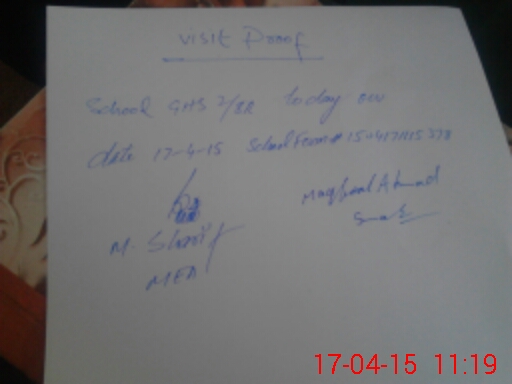 Visit Proof
School GHS 2/8R today on
date 17-4-15 School Form # 150417115378
M. Sharif
MEA
Maqbool Ahmad
17-04-15 11:19